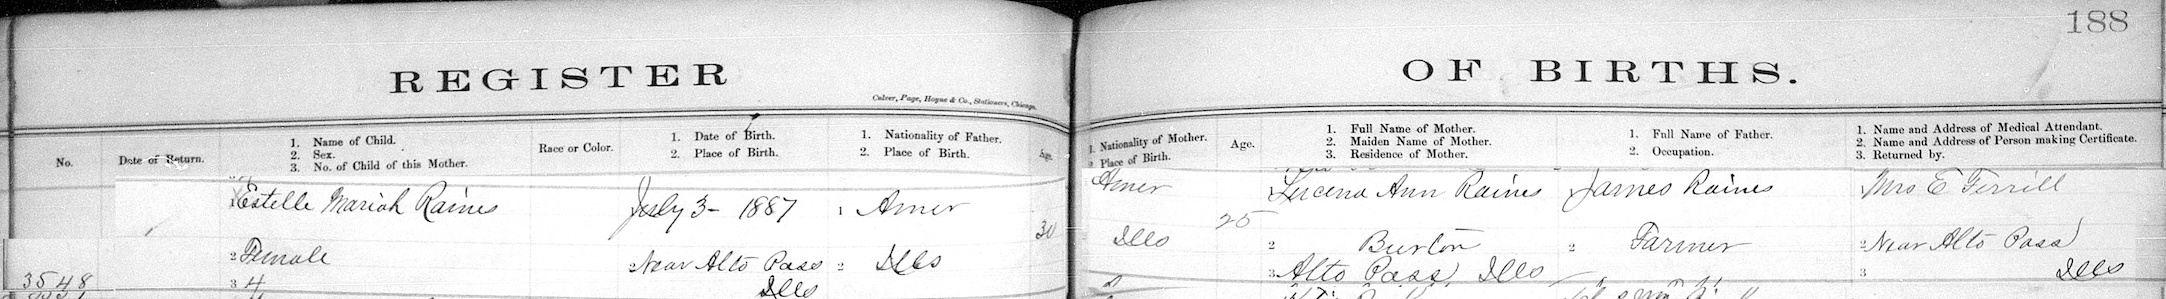 188
REGISTER OF BIRTHS.
Culver, Page, Hoyne & Co., Stationers, Chicago.
No.
Date of Return.
1. Name of Child.
2. Sex.
3. No. of Child of this Mother.
Race or Color.
1. Date of Birth.
2. Place of Birth.
1. Nationality of Father.
2. Place of Birth.
Age.
1. Nationality of Mother.
2 Place of Birth.
Age.
1. Full Name of Mother.
2. Maiden Name of Mother.
3. Residence of Mother.
1. Full Name of Father.
2. Occupation.
1. Name and Address of Medical Attendant.
2. Name and Address of Person making Certificate.
3. Returned by.
3548
Estelle Mariah Raines
2 Female
3 4
July 3 - 1887
2 Near Alto Pass
Ills
1 Amer
2 Ills
30
Amer
Ills
25
Lucena Ann Raines
2 Burton
3 Alto Pass, Ills
James Raines
2 Farmer
Mrs E Ferrill
2 Near Alto Pass
3 Ills